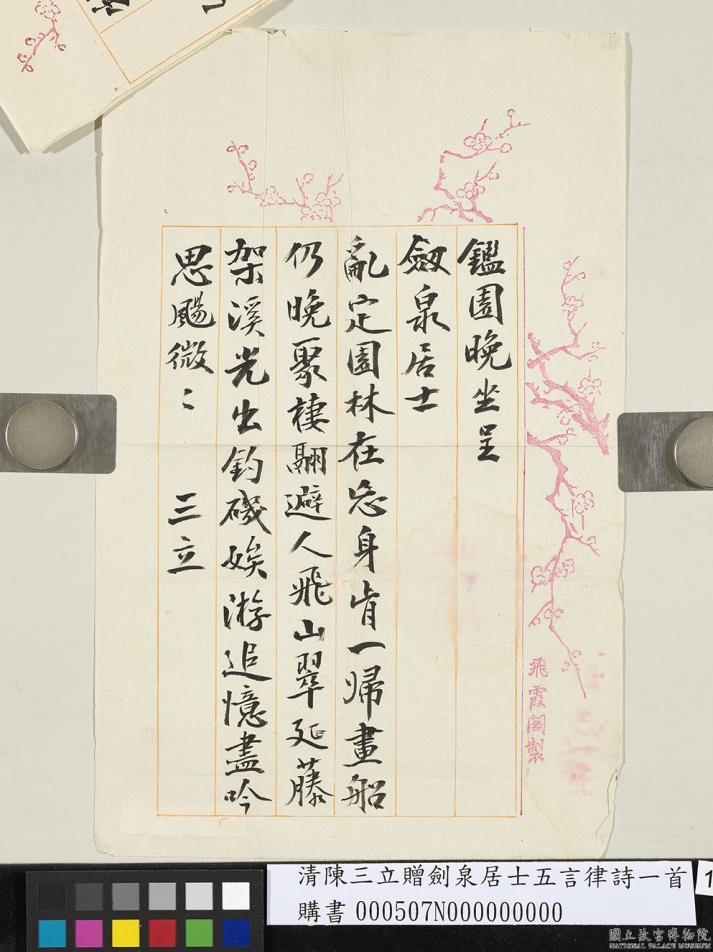 鑑園晚坐呈
劔泉居士
亂定園林在忘身肯一歸畫船
仍晚聚棲翮避人飛山翠延藤
架溪光出釣磯娭游追憶盡吟
思颺微〻 三立
飛霞閣製
清陳三立贈劍泉居士五言律詩一首
購書 000507N000000000
1
國立故宮博物院
NATIONAL PALACE MUSEUM